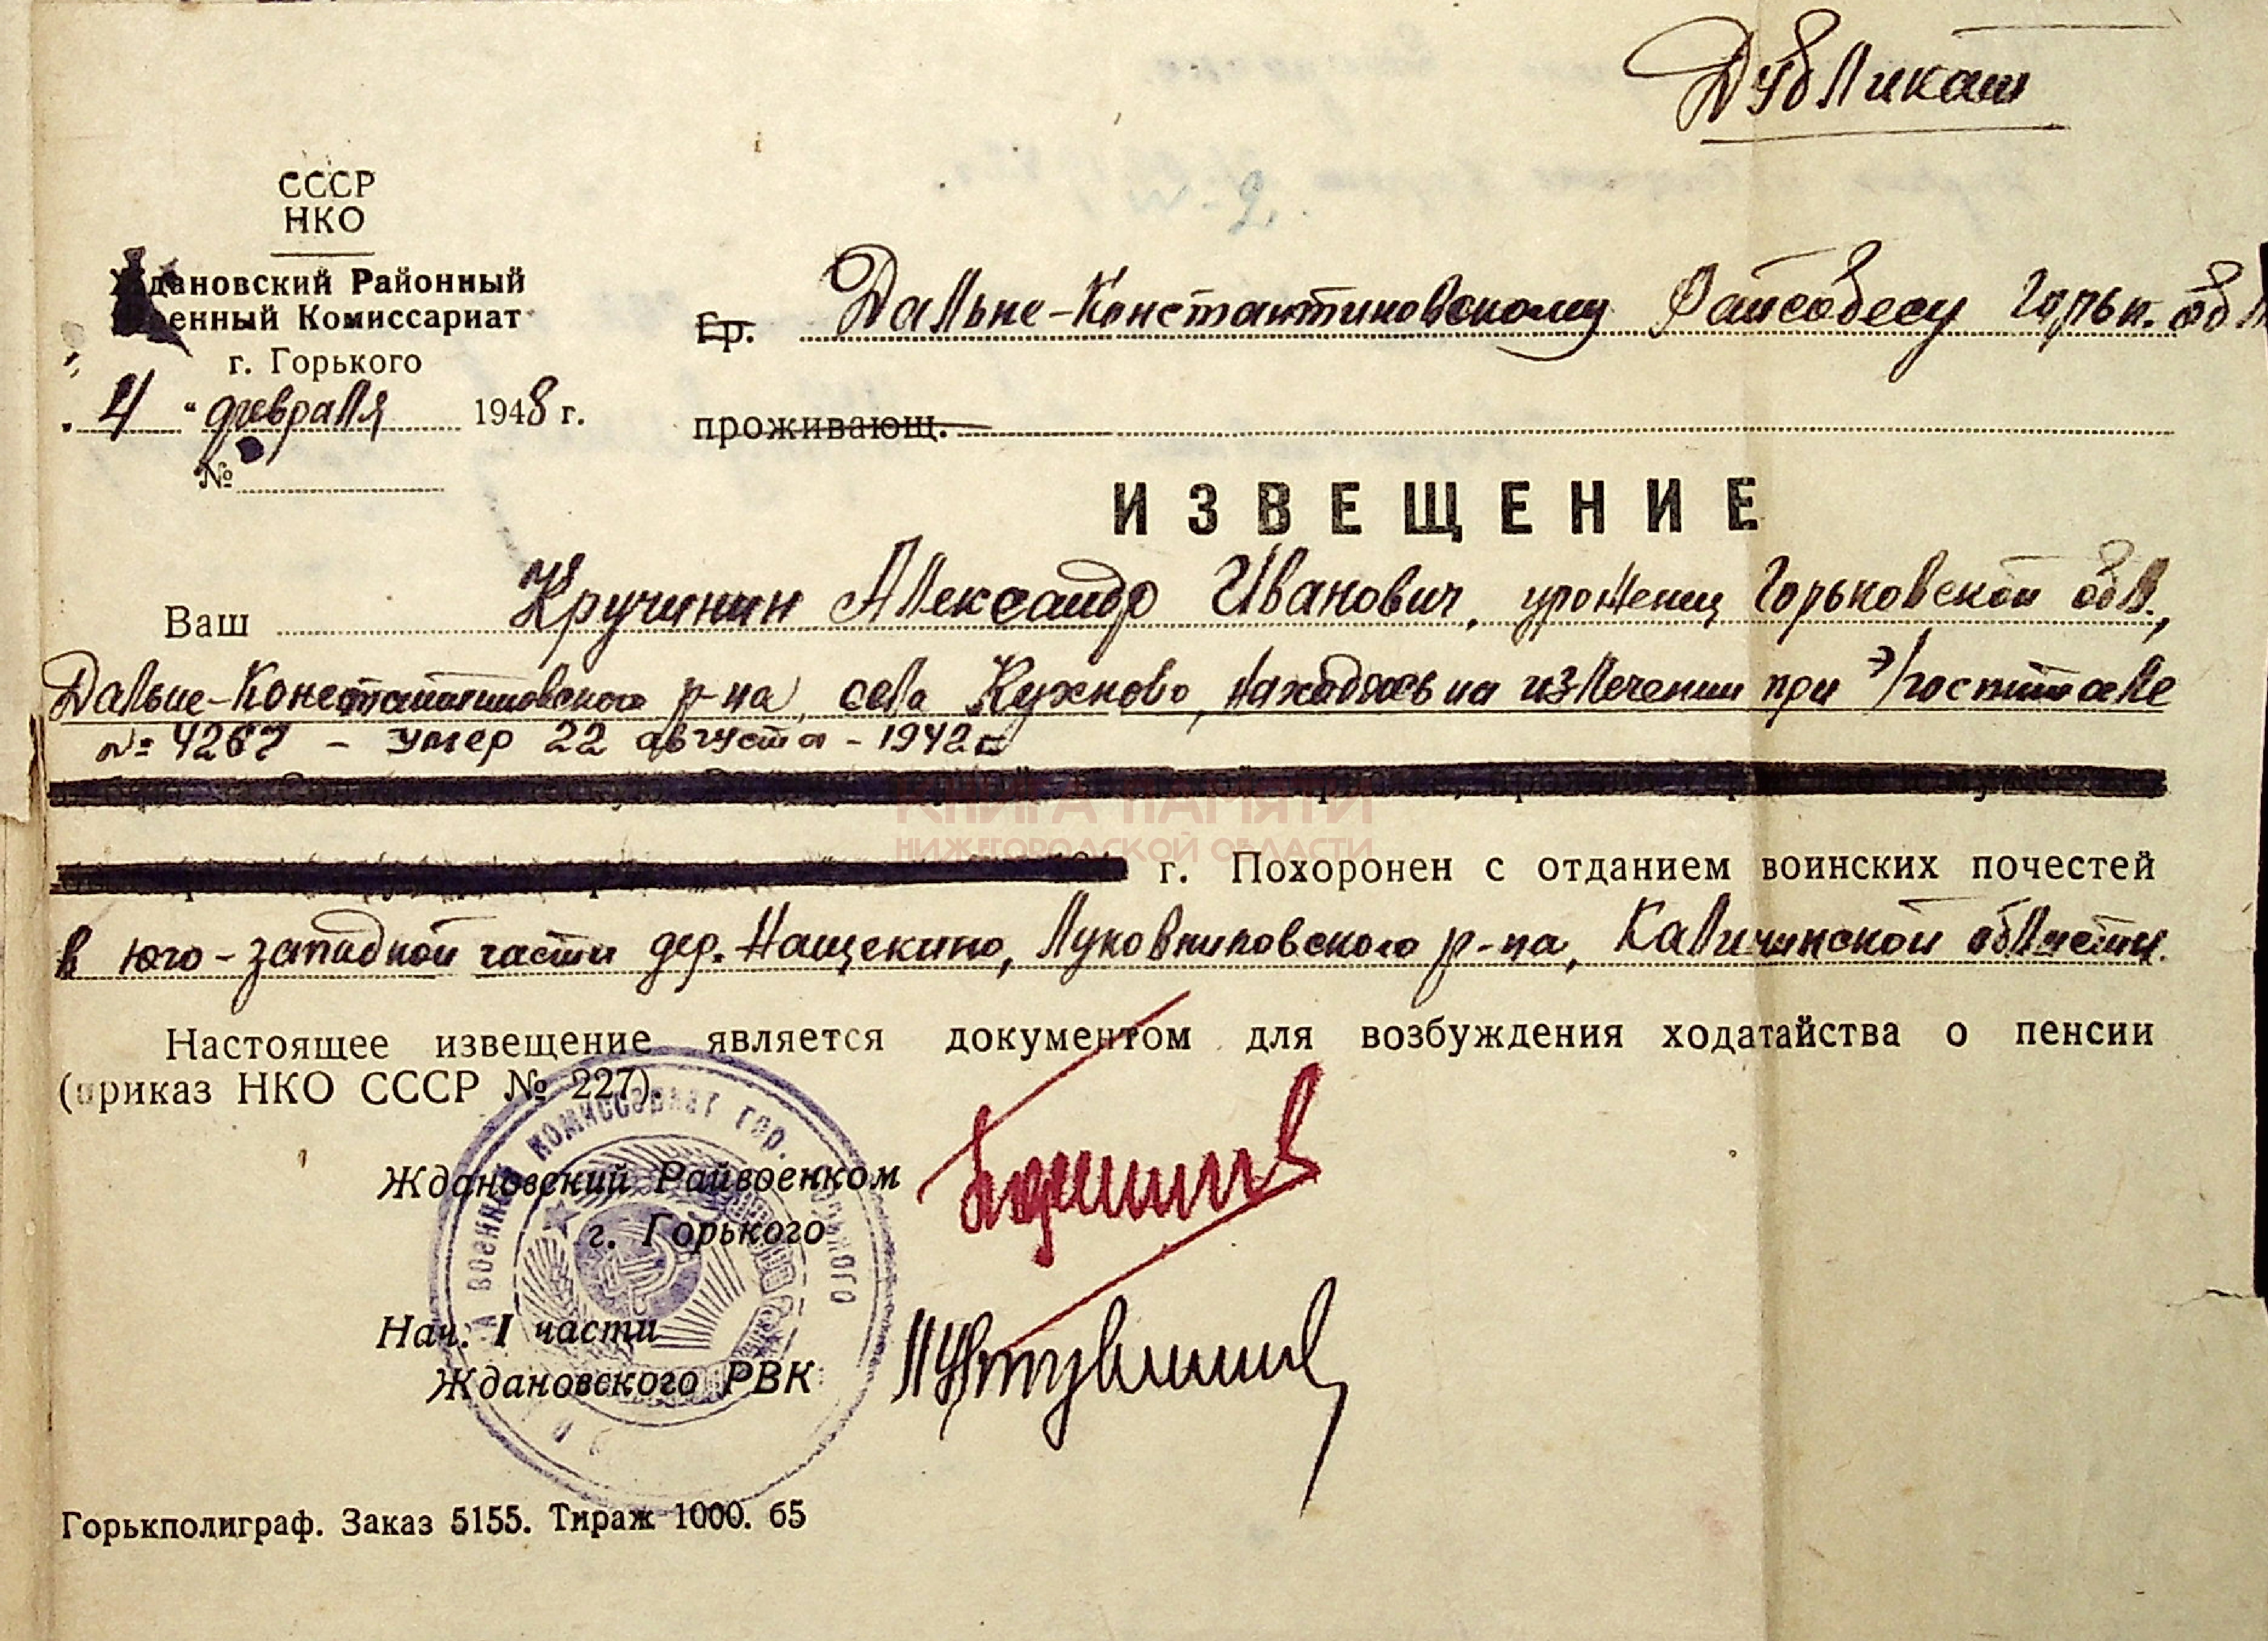 Дубликат
СССР
НКО
Ждановский Районный
Военный Комиссариат
г. Горького
„ 4 “ февраля 1948 г.
№
Гр. Дальне-Константиновскому Райсобесу Горьк. обл
проживающ.
ИЗВЕЩЕНИЕ
Ваш Кручинин Александр Иванович, уроженец Горьковской обл.,
Дальне-Константиновского р-на, села Кужново, находясь на излечении при э/госпитале
№ 4267 - умер 22 августа - 1942 г
г. Похоронен с отданием воинских почестей
в юго-западной части дер. Нащекино, Луковниковского р-на, Калининской области.
Настоящее извещение является документом для возбуждения ходатайства о пенсии
(приказ НКО СССР № 227)
Ждановский Райвоенком
г. Горького
Нач. I части
Ждановского РВК
Горькполиграф. Заказ 5155. Тираж 1000. 65
КНИГА ПАМЯТИ
НИЖЕГОРОДСКОЙ ОБЛАСТИ